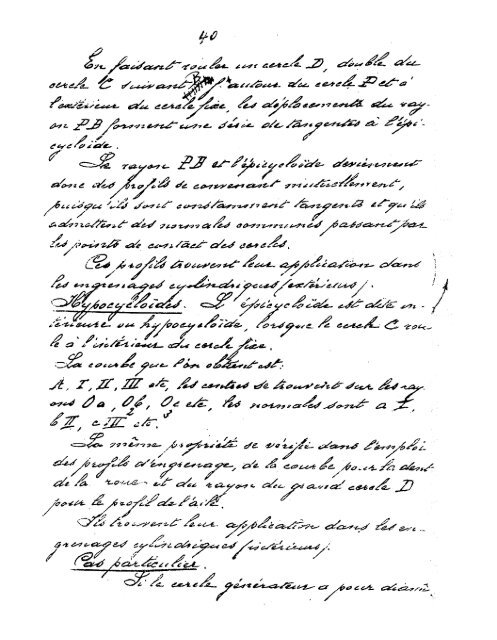 40
En faisant rouler un cercle D, double du
cercle C suivant B f. autour du cercle P et à
l'extérieur du cercle fixe, les déplacements du ray-
on PB forment une série de tangentes à l'épi-
cycloïde.
Le rayon PB et l'épicycloïde deviennent
donc des profils se convenant mutuellement,
puisqu'ils sont constamment tangents et qu'ils
admettent des normales communes passant par
les points de contact des cercles.
Ces profils trouvent leur application dans
les engrenages cylindriques (extérieurs).
Hypocycloïdes. L'épicycloïde est dite in-
térieure ou hypocycloïde, lorsque le cercle C rou-
le à l'intérieur du cercle fixe.
La courbe que l'on obtient est:
A, I, II, III etc, les centres se trouvent sur les ray-
ons Oa, Ob, Oc etc, les normales sont a I,
b II, c III etc.
La même propriété se vérifie dans l'emploi
des profils d'engrenage, de la courbe pour la dent
de la roue et du rayon du grand cercle D
pour le profil de l'aile.
Ils trouvent leur application dans les en-
grenages cylindriques (intérieurs).
Cas particulier.
Si le cercle générateur a pour diam.